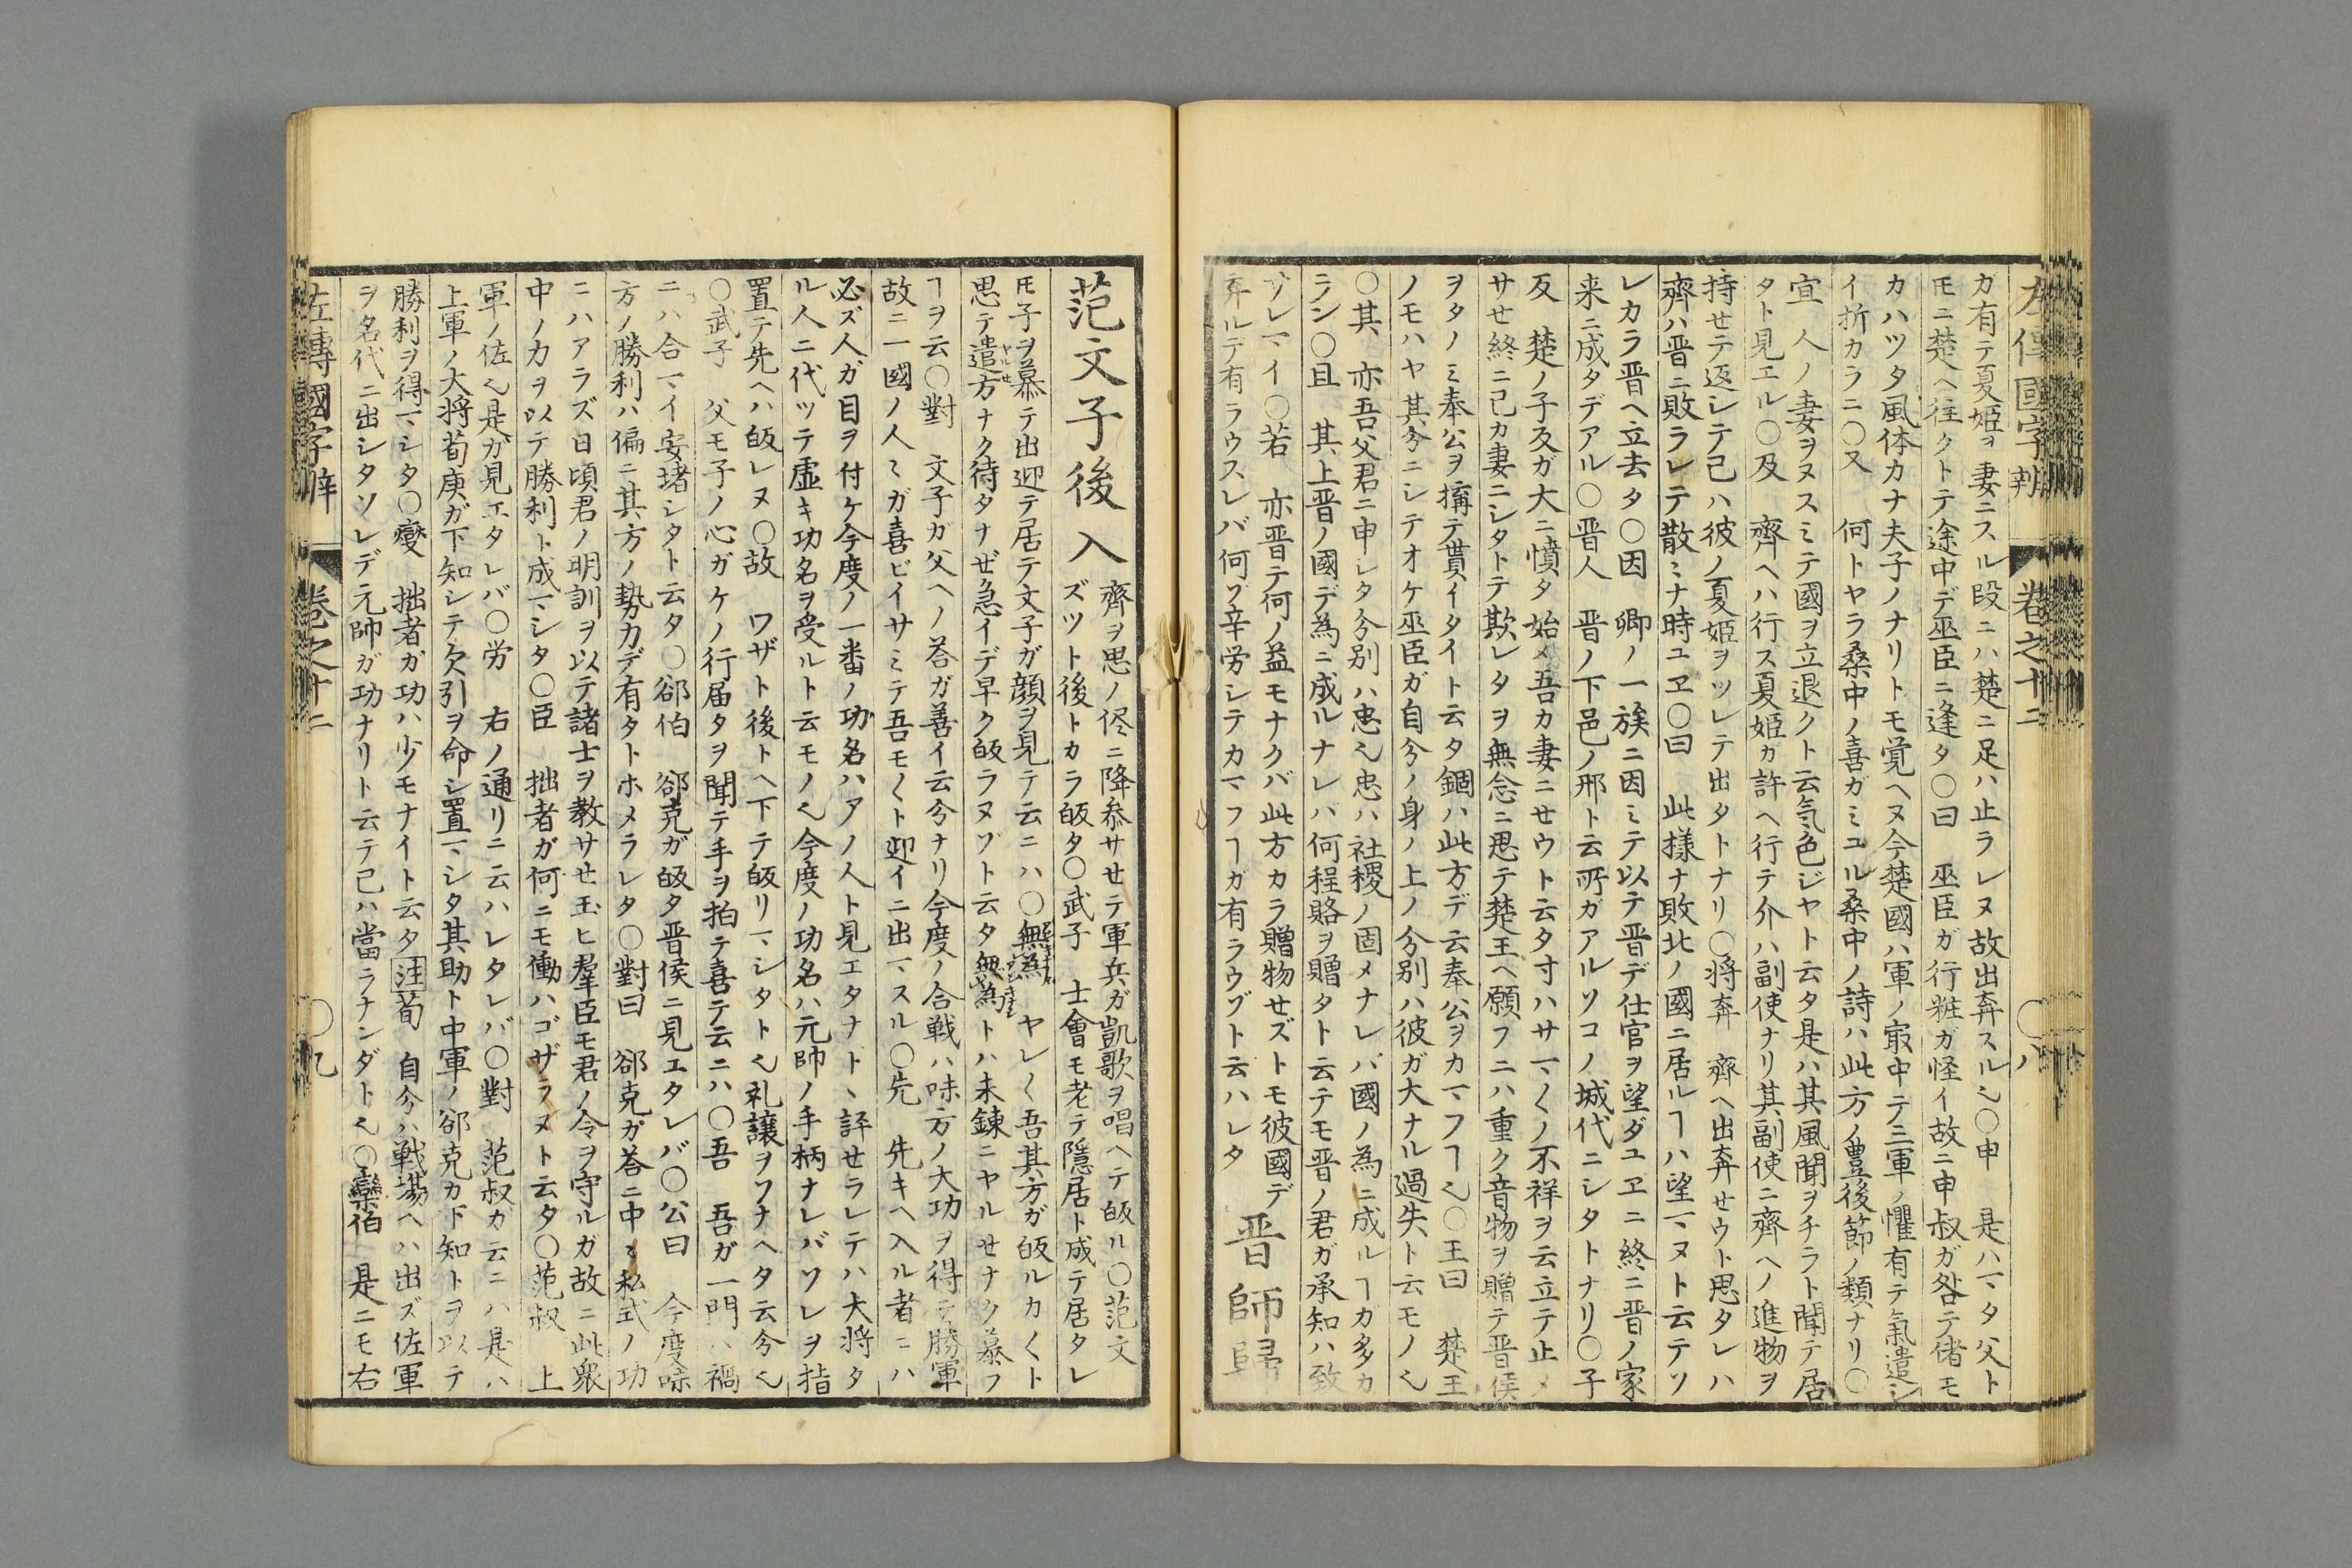 左傳國字辨　卷之十二　〇八
カ有テ夏姫ヲ妻ニスル段ニハ楚ニ足ハ止ラレヌ故出奔スル乀〇申　是ハマタ父ト
モニ楚ヘ往クトテ途中デ巫臣ニ逢タ〇曰　巫臣ガ行粧ガ怪イ故ニ申叔ガ咎テ偖モ
カハツタ風体カナ夫子ノナリトモ覚ヘヌ今楚國ハ軍ノ㝡中テ三軍ノ懼有テ氣遣シ
イ折カラニ〇又　何トヤラ桑中ノ喜ガミユル桑中ノ詩ハ此方ノ豊後節ノ類ナリ〇
宜　人ノ妻ヲヌスミテ國ヲ立退クト云気色ジヤト云タ是ハ其風聞ヲチラト聞テ居
タト見エル〇及　齊ヘハ行ズ夏姫カ許ヘ行テ介ハ副使ナリ其副使ニ齊ヘノ進物ヲ
持せテ返シテ己ハ彼ノ夏姫ヲツレテ出タトナリ〇将奔　齊ヘ出奔せウト思タレハ
齊ハ晋ニ敗ラレテ散ミナ時ユヱ〇曰　此様ナ敗北ノ國ニ居ルヿハ望マヌト云テソ
レカラ晋ヘ立去タ〇因　卿ノ一族ニ因ミテ以テ晋デ仕官ヲ望ダユヱニ終ニ晋ノ家
来ニ成タデアル〇晋人　晋ノ下邑ノ邢ト云所ガアルソコノ城代ニシタトナリ〇子
反　楚ノ子反ガ大ニ憤タ始メ吾カ妻ニせウト云タ寸ハサマ〱ノ不祥ヲ云立テ止メ
サせ終ニ己カ妻ニシタトテ欺レタヲ無念ニ思テ楚王ヘ願フニハ重ク音物ヲ贈テ晋侯
ヲタノミ奉公ヲ搆テ貰イタイト云タ錮ハ此方デ云奉公ヲカマフヿ乀〇王曰　楚王
ノモハヤ其分ニシテオケ巫臣ガ自分ノ身ノ上ノ分別ハ彼ガ大ナル過失ト云モノ乀
〇其　亦吾父君ニ申シタ分別ハ忠乀忠ハ社稷ノ固メナレバ國ノ為ニ成ルヿカ多カ
ラン〇且　其上晋ノ國デ為ニ成ルナレバ何程賂ヲ贈タト云テモ晋ノ君ガ承知ハ致
サレマイ〇若　亦晋テ何ノ益モナクバ此方カラ贈物せズトモ彼國デ
弃ルデ有ラウスレバ何ゾ辛労シテカマフヿガ有ラウゾト云ハレタ　晋師歸
范文子後入　齊ヲ思ノ侭ニ降参サせテ軍兵ガ凱歌ヲ唱ヘテ皈ル〇范文
ズツト後トカラ皈タ〇武子　士會モ老テ隠居ト成テ居タレ
𪜈子ヲ慕テ出迎テ居テ文子ガ顔ヲ見テ云ニハ〇無為　ヤレ〱吾其方ガ皈ルカ〱ト
思テ遣方ナク待タナぜ急イデ早ク皈ラヌゾト云タ無為トハ未錬ニヤルせナク慕フ
ヿヲ云〇對　文子カ父ヘノ答ガ善イ云分ナリ今度ノ合戦ハ味方ノ大功ヲ得テ勝軍
故ニ一國ノ人ミガ喜ビイサミテ吾モ〱ト迎イニ出マスル〇先　先キヘ入ル者ニハ
必ズ人ガ目ヲ付ケ今度ノ一番ノ功名ハアノ人ト見エタナト、評せラレテハ大将タ
ル人ニ代ツテ虚キ功名ヲ受ルト云モノ乀今度ノ功名ハ元帥ノ手柄ナレバソレヲ指
置テ先ヘハ皈レヌ〇故　ワザト後トヘ下テ皈リマシタト乀礼譲ヲソナヘタ云分乀
〇武子　父モ子ノ心ガケノ行届タヲ聞テ手ヲ拍テ喜テ云ニハ〇吾　吾ガ一門ハ禍
ニハ合マイ安堵シタト云タ〇郤伯　郤克ガ皈タ晋侯ニ見エタレバ〇公曰　今度味
方ノ勝利ハ偏ニ其方ノ勢力デ有タトホメラレタ〇對曰　郤克ガ荅ニ中ミ私式ノ功
ニハアラズ日頃君ノ明訓ヲ以テ諸士ヲ教サせ玉ヒ羣臣モ君ノ令ヲ守ルガ故ニ此衆
中ノカヲ以テ勝利ト成マシタ〇臣　拙者ガ何ニモ働ハゴザラヌト云タ〇范叔　上
軍ノ佐乀是ガ見エタレバ〇労　右ノ通リニ云ハレタレバ〇對　范叔ガ云ニハ是ハ
上軍ノ大将荀庚ガ下知シテ欠引ヲ命シ置マシタ其助ト中軍ノ郤克カ下知トヲ以テ
勝利ヲ得マシタ〇燮　拙者ガ功ハ少モナイト云タ注荀　自分ハ戦場ヘハ出ズ佐軍
ヲ名代ニ出シタソレデ元帥ガ功ナリト云テ己ハ當ラナンダト乀〇欒伯　是ニモ右
左傳國字辨　卷之十二　〇九